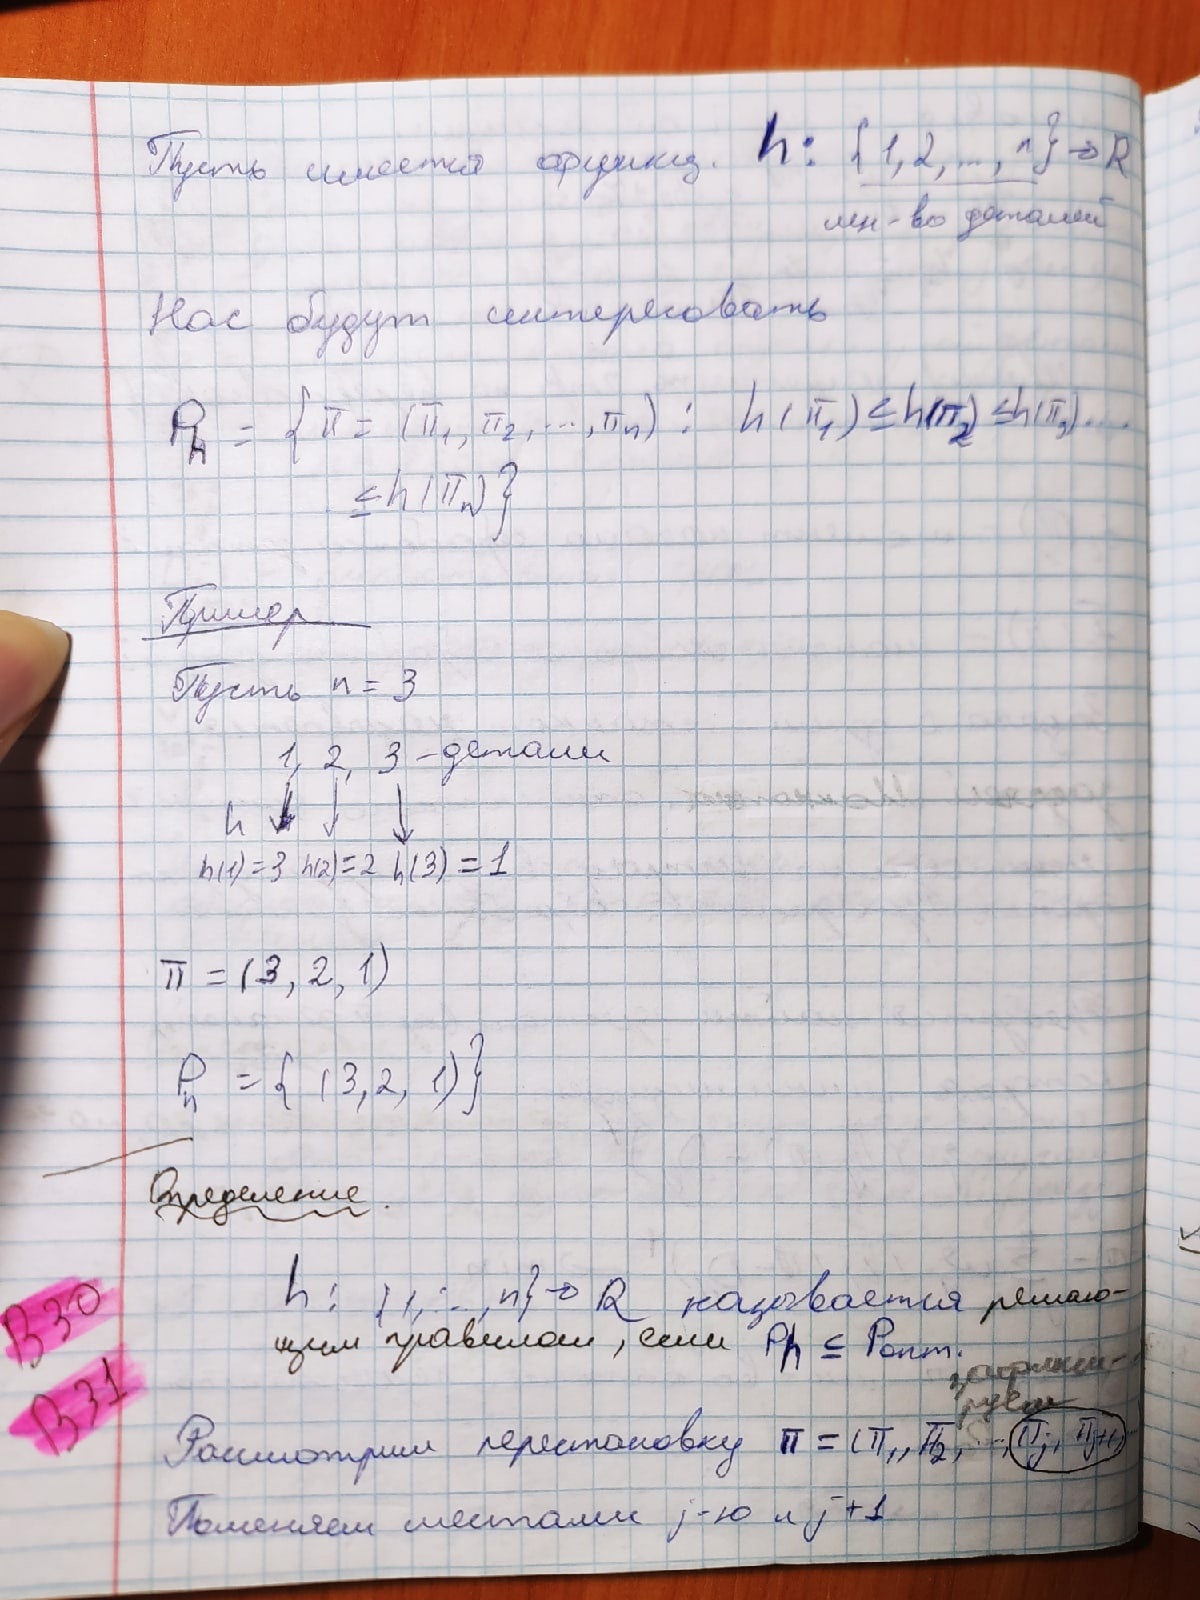 Пусть имеется функц. h: {1, 2, ..., n} → R
мн-во деталей
Нас будут интересовать
Pₕ = { π = (π₁, π₂, ..., πₙ) : h(π₁) ≤ h(π₂) ≤ h(π₃) ....
≤ h(πₙ) }
Пример
Пусть n = 3
1, 2, 3 - детали
h ↓ ↓ ↓
h(1) = 3 h(2) = 2 h(3) = 1
π = (3, 2, 1)
Pₕ = { (3, 2, 1) }
Определение.
h: {1, ..., n} → R называется решаю-
B30
щим правилом, если Pₕ ⊆ Pопт.
B31
зафикси-
руем
Рассмотрим перестановку π = (π₁, π₂, ..., πⱼ, πⱼ₊₁, ..
Поменяем местами j-ю и j+1